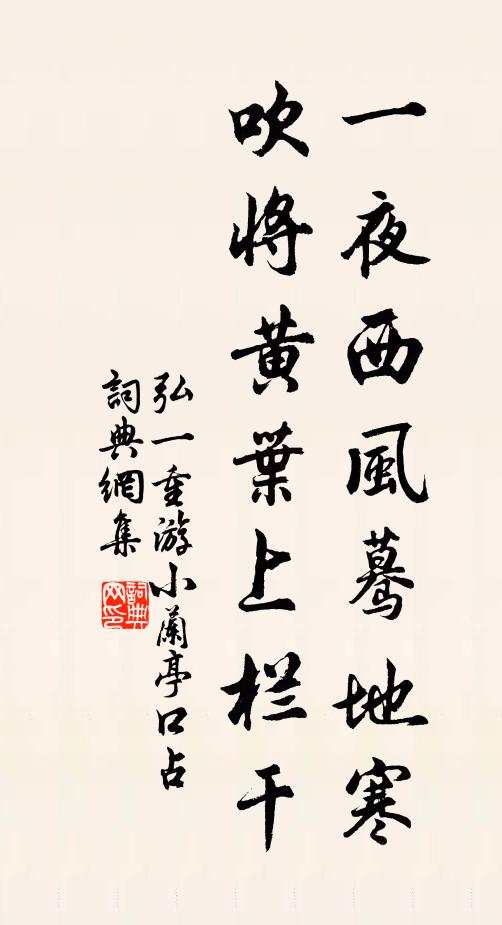 一夜西風蓦地寒
吹將黄葉上栏干
弘一重游小蘭亭口占
詞典網集
詞典网印